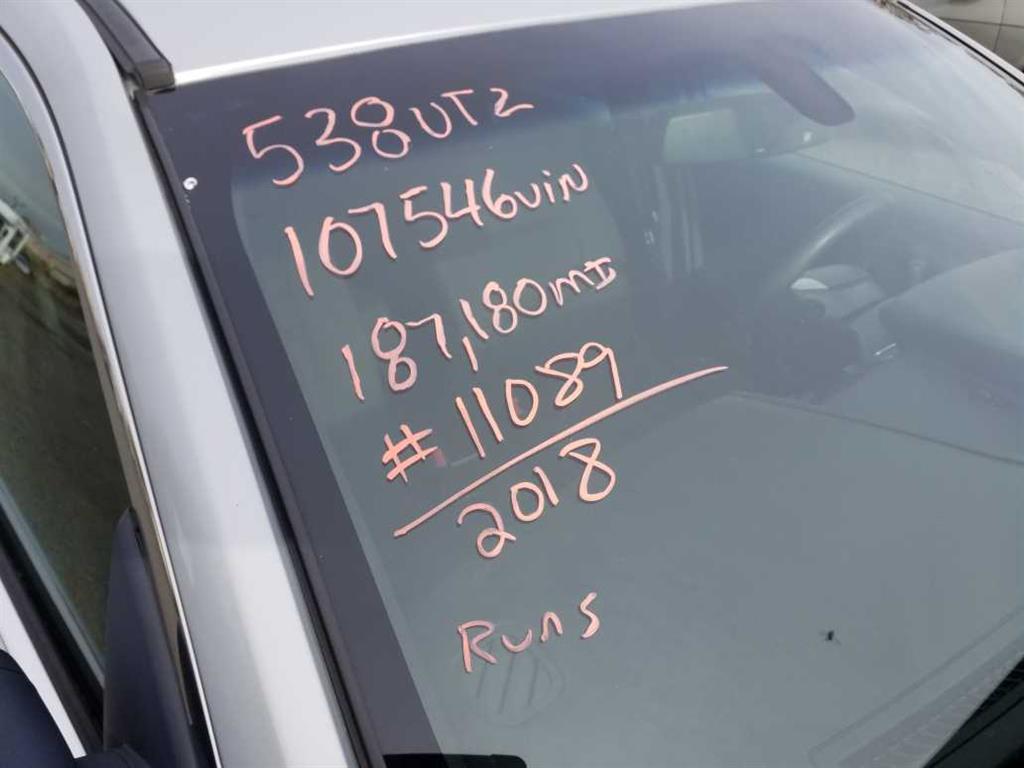 538UTZ
107546 VIN
187,180 MI
# 11089
2018
Runs